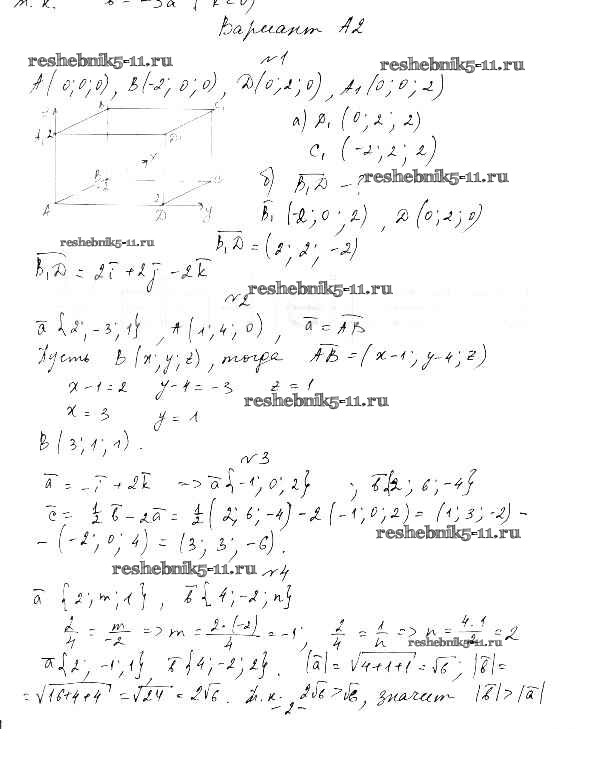 т. к. b = -3a (k<0)
Вариант А2
№1
reshebnik5-11.ru
reshebnik5-11.ru
A(0;0;0), B(-2;0;0), D(0;2;0), A₁(0;0;2)
а) D₁ (0; 2; 2)
C₁ (-2; 2; 2)
б) B₁D - ?
reshebnik5-11.ru
B₁ (-2; 0; 2), D(0; 2; 0)
B₁D = (2; 2; -2)
reshebnik5-11.ru
B₁D = 2i + 2j - 2k
№2
reshebnik5-11.ru
a {2; -3; 1}, A(1; 4; 0), a = AB
Пусть B(x; y; z), тогда AB = (x-1; y-4; z)
x-1=2 y-4=-3 z=1
x=3 y=1
reshebnik5-11.ru
B(3; 1; 1).
№3
a = -i + 2k => a{-1; 0; 2}; b{2; 6; -4}
c = 1/2 b - 2a = 1/2 (2; 6; -4) - 2(-1; 0; 2) = (1; 3; -2) -
- (-2; 0; 4) = (3; 3; -6).
reshebnik5-11.ru
reshebnik5-11.ru
№4
a {2; m; 1}, b{4; -2; n}
2/4 = m/-2 => m = 2·(-2)/4 = -1; 2/4 = 1/n => n = 4·1/2 = 2
reshebnik5-11.ru
a{2; -1; 1}, b{4; -2; 2}. |a| = √4+1+1 = √6; |b| =
= √16+4+4 = √24 = 2√6. Т.к. 2√6 > √6, значит |b| > |a|
- 2 -